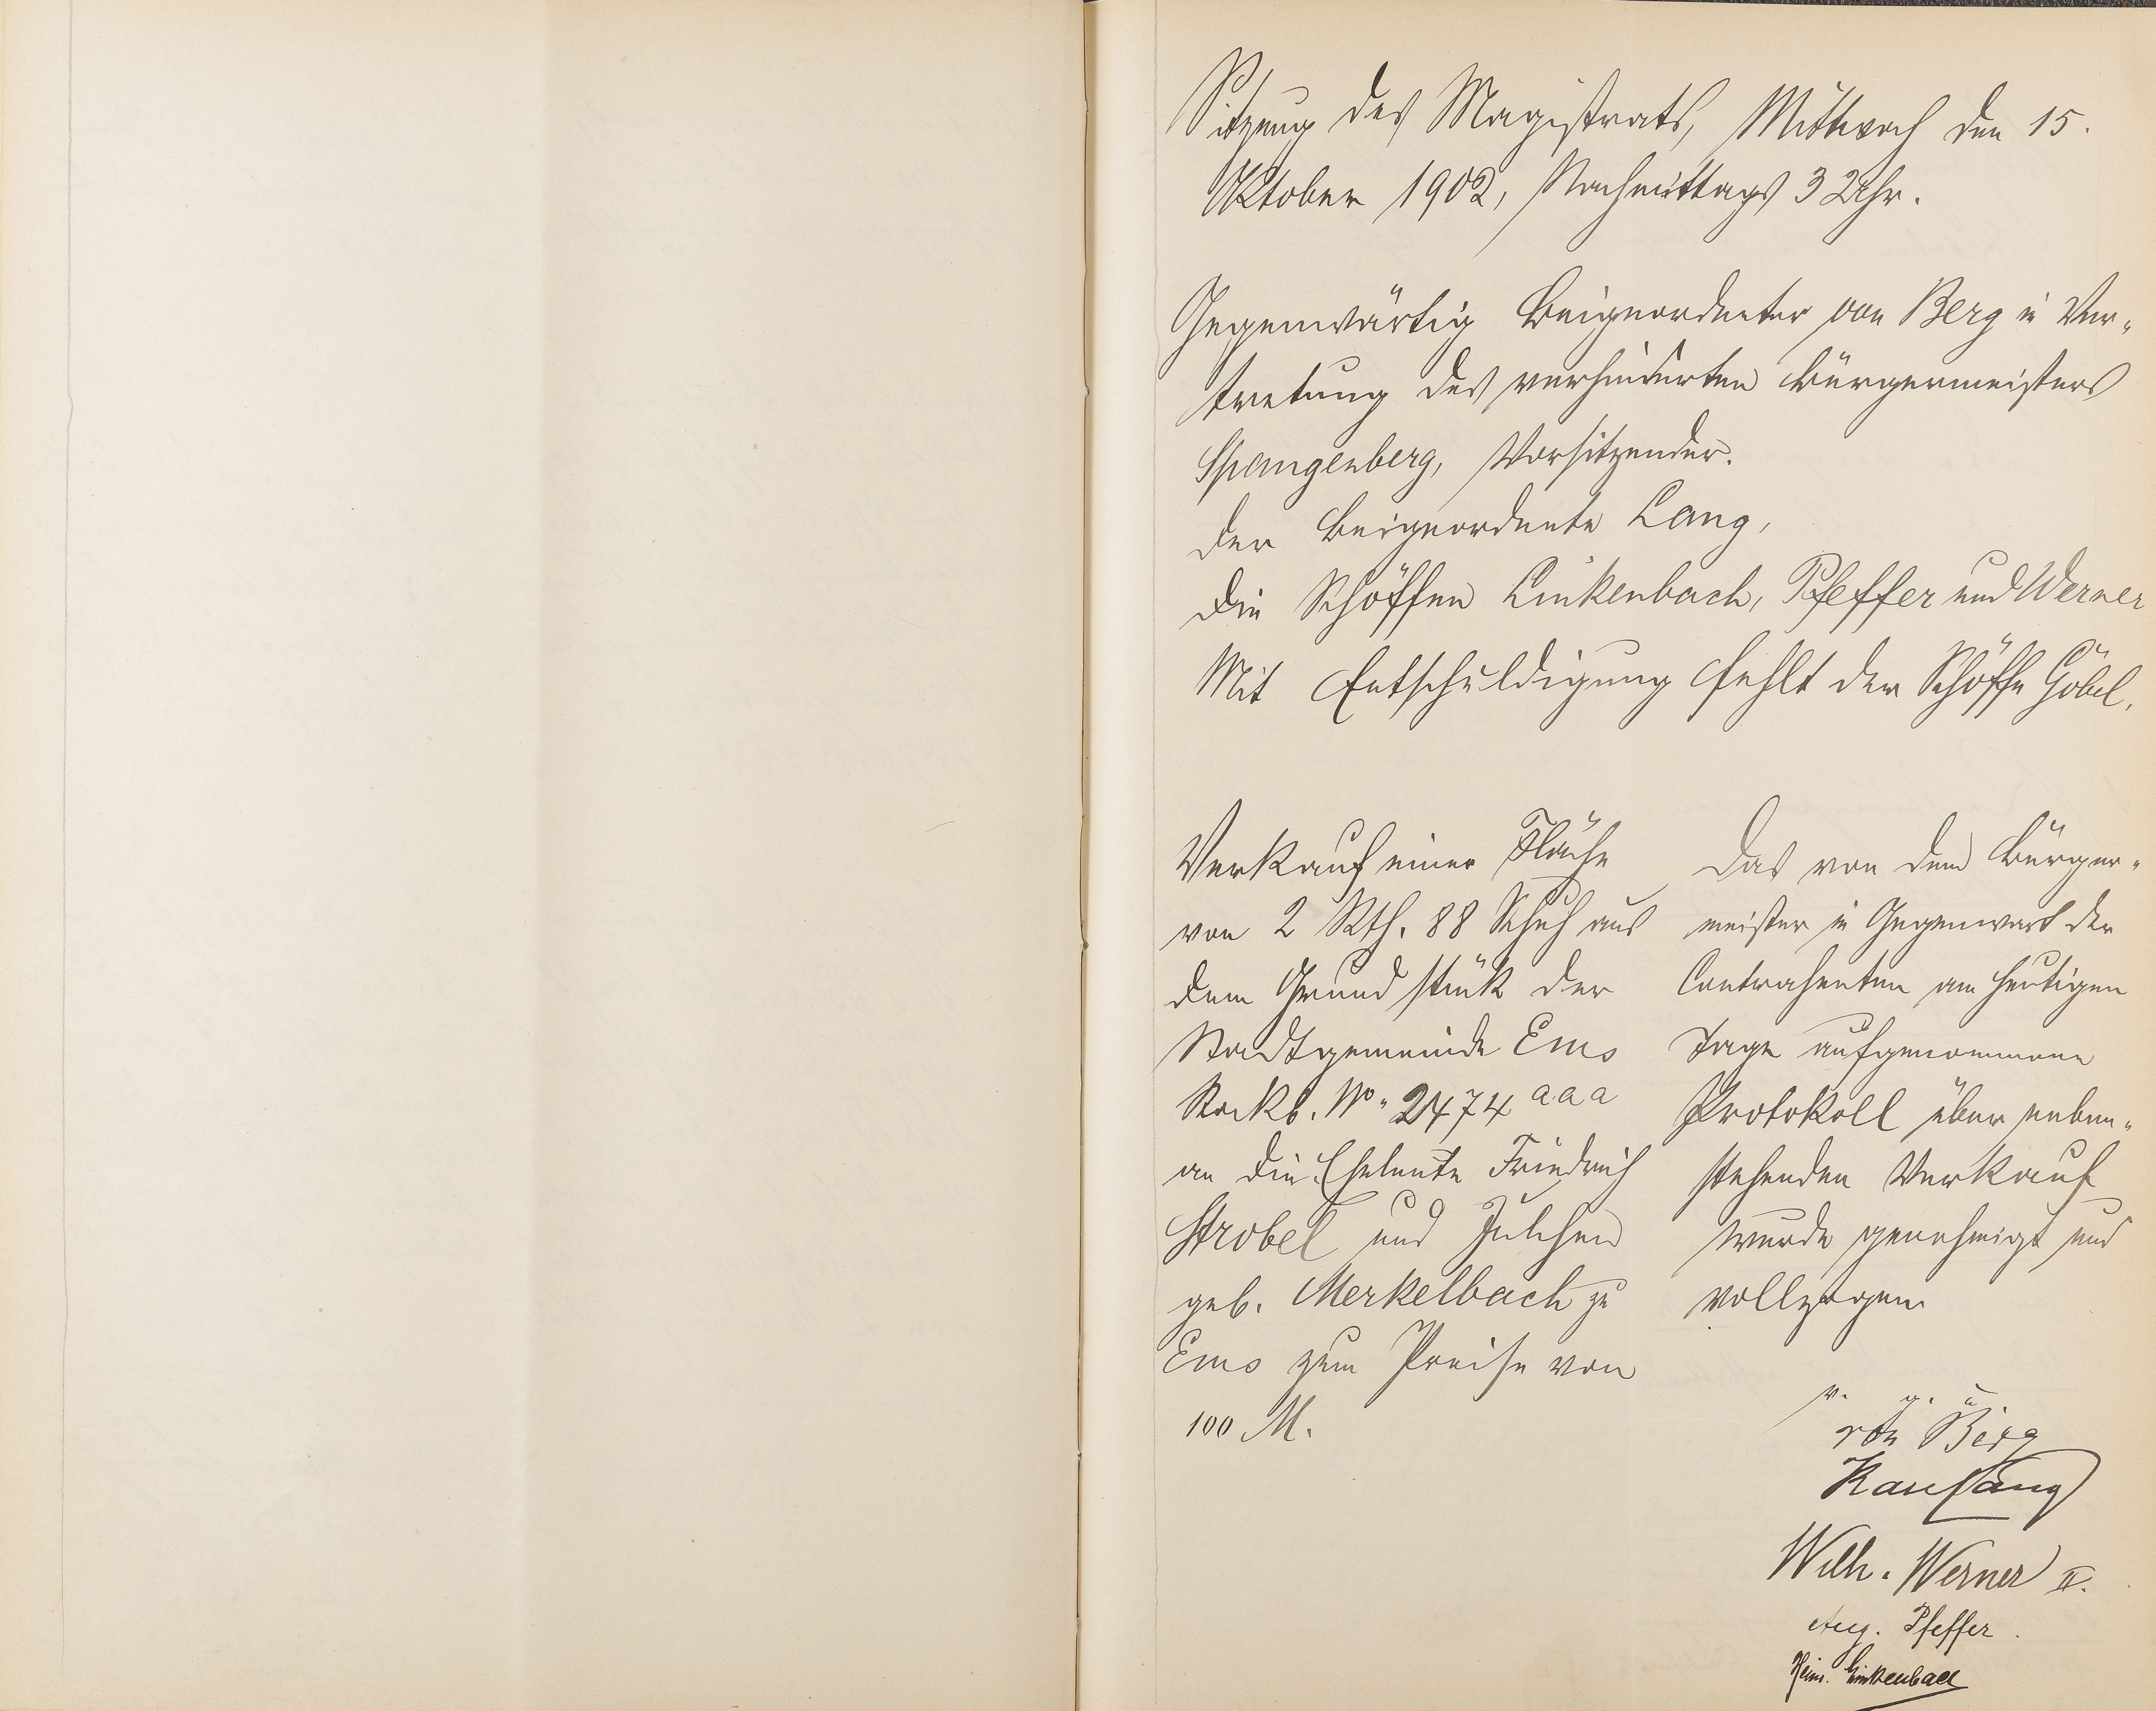 Sitzung des Magistrats, Mittwoch den 15.
Oktober 1902, Nachmittags 3 Uhr.
Gegenwärtig Beigeordneter von Berg in Ver-
tretung des verhinderten Bürgermeisters
Spangenberg, Vorsitzender.
Der Beigeordnete Lang,
Die Schöffen Linkenbach, Pfeffer und Werner
Mit Entschuldigung fehlt der Schöffe Göbel.
Verkauf einer Fläche
von 2 Rth. 88 Schuh aus
dem Grundstück der
Stadtgemeinde Ems
Stockb. No. 2474 aaa
an die Eheleute Friedrich
Strobel und Julchen
geb. Merkelbach zu
Ems zum Preise von
100 M.
Das von dem Bürger-
meister in Gegenwart der
Contrahenten am heutigen
Tage aufgenommene
Protokoll über neben-
stehenden Verkauf
wurde genehmigt und
vollzogen
v. g. u.
von Berg
Karl Lang
Wilh. Werner II.
Aug. Pfeffer.
Heinr. Linkenbach